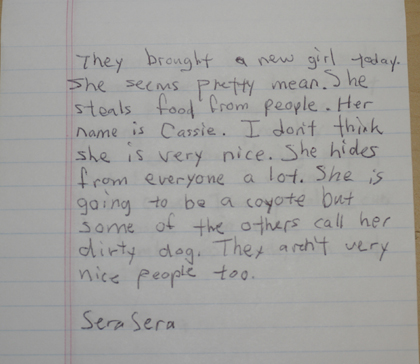 They brought a new girl today.
She seems pretty mean. She
steals food from people. Her
name is Cassie. I don't think
she is very nice. She hides
from everyone a lot. She is
going to be a coyote but
some of the others call her
dirty dog. They aren't very
nice people too.
Sera Sera